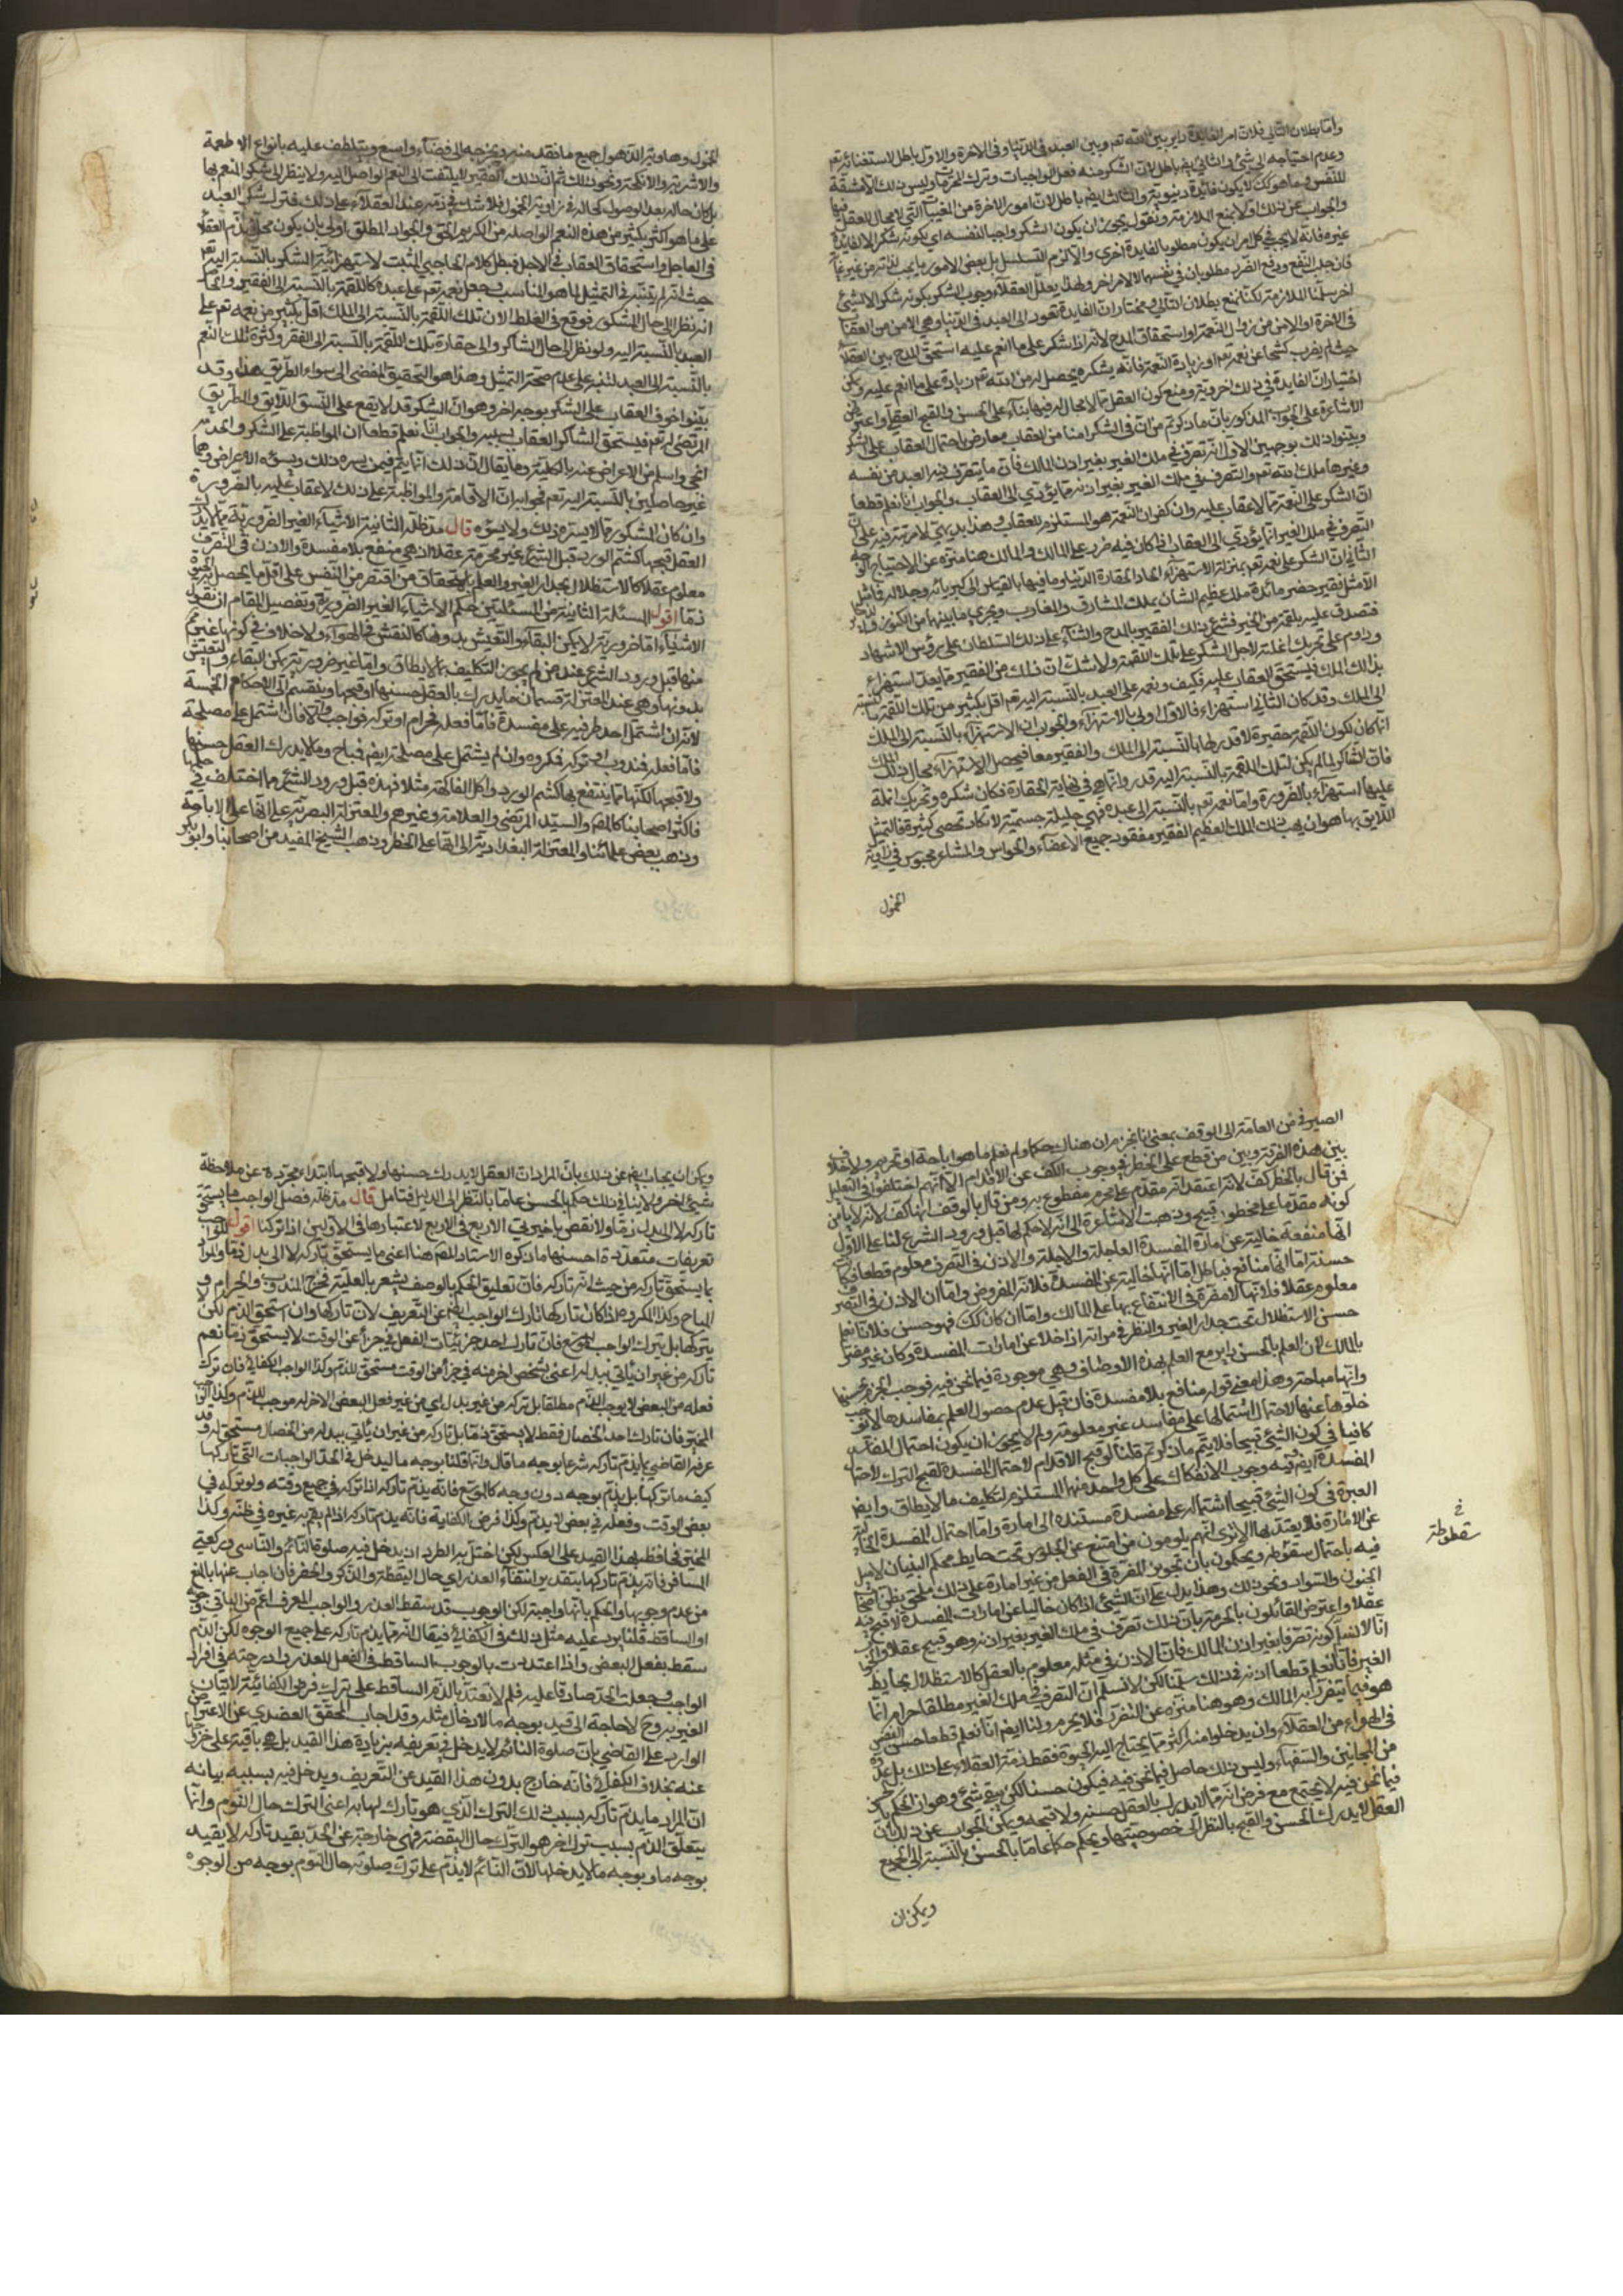 واما بطلان التالي فلان امر الفايدة داير بين الله تعم وبين العبد في الدنيا وفي الاخرة والاول باطل لاستغنائه تعم
وعدم احتياجه الى شئ والثاني ايضم باطل لان الشكر منه فعل الواجبات وترك المحرمات وليس ذلك الا مشقة
للنفس وما هو كك لا يكون فايدة دنيوية والثالث ايضم باطل لان امور الاخرة من المغيبات التي لا مجال للعقل فيها
والجواب عن ذلك اولا بمنع الملازمة ونقول يجوز ان يكون الشكر واجبا لنفسه اي كونه شكرا لا لفايدة
غيره فانه لا يجب في كل امر ان يكون مطلوبا لفايدة اخرى والا لزم التسلسل بل بعض الامور ما يجب لذاته من غير
فان جلب النفع ودفع الضرر مطلوبان في نفسهما لا لامر اخر ولهذا يعلل العقلاء وجوب الشكر بكونه شكرا لا لشئ
اخر سلمنا الملازمة لكنا نمنع بطلان التالي فنختار ان الفايدة تعود الى العبد في الدنيا وهي الامن من العقاب
في الاخرة او الامن من زوال النعمة او استحقاق المدح لانه اذا شكر على ما انعم عليه استحق المدح بين العقلاء
حيث لم يضرب كشحا عن نعمه تعم او زيادة النعمة فانه بشكره يحصل له من الله تعم زيادة على ما انعم عليه ويمكن
اختيار ان الفايدة في ذلك اخروية ونمنع كون العقل مما لا مجال له فيها بناء على الحسن والقبح العقلي واعترض
الاشاعرة على الجواب المذكور بان ما ذكرتم من ان في الشكر امنا من العقاب معارض باحتمال العقاب على الشكر
وبينوا ذلك بوجهين الاول انه تصرف في ملك الغير بغير اذن المالك فان ما يتصرف فيه العبد من نفسه
وغيرها ملك الله تعم والتصرف في ملك الغير بغير اذنه مما يؤدي الى العقاب والجواب انا نعلم قطعا
ان الشكر على النعمة مما لا عقاب عليه وان كفران النعمة هو المستلزم للعقاب وهذا بديهي لا مرية فيه على ان
التصرف في ملك الغير انما يؤدي الى العقاب اذا كان فيه ضرر على المالك والمالك هنا منزه عن الاحتياج
الثاني ان الشكر على نعمه تعم بمنزلة الاستهزاء لحقارة الدنيا وما فيها بالقياس الى كبريائه وجلاله فان
الا مثل فقير حضر مائدة ملك عظيم الشان يملك المشارق والمغارب ويحوي ما بينهما من الكنوز
فتصدق عليه بلقمة من الخبز فشرع ذلك الفقير بالمدح والثناء على ذلك السلطان على رؤس الاشهاد
وداوم على تحريك انملته لاجل الشكر على تلك اللقمة ولا شك ان ذلك من الفقير مما يعد استهزاء
بذلك الملك فيستحق العقاب عليه فكيف ونعمه على العبد بالنسبة اليه تعم اقل بكثير من تلك اللقمة بالنسبة
الى الملك وقد كان الثاني استهزاء فالاول اولى بالاستهزاء والجواب ان الاستهزاء بالنسبة الى الملك
انما كان لكون اللقمة حقيرة لا قدر لها بالنسبة الى الملك والفقير معا فيحصل الاستهزاء بحال ذلك الملك
فان الشاكر لما لم يكن لتلك اللقمة بالنسبة اليه قدر وانما هي في نهاية الحقارة فكان شكره وتحريك انملة
عليها استهزاء بالضرورة واما نعمه تعم بالنسبة الى عبده فهي جليلة جسيمة لا تكاد تحصى كثيرة فالتمثيل
اللايق بها هو ان يهب ذلك الملك العظيم الفقير مفقود جميع الاعضاء والحواس والمشاعر محبوس في زاوية
الخمول
الخمول وهاوية الذهول جميع ما فقد منه ويخرجه الى فضاء واسع ويتلطف عليه بانواع الاطعمة
والاشربة والانكحة ونحو ذلك ثم ان ذلك الفقير لا يلتفت الى النعم الواصل اليه ولا ينظر الى شكر المنعم بها
بل كان حاله بعد الوصول كحاله في زاوية الخمول فلا شك في ذمه عند العقلاء على ذلك فترك شكر العبد
على ما هو اكثر بكثير من هذه النعم الواصلة من الكريم الحق والجواد المطلق اولى بان يكون محلا لذم العقلاء
في العاجل واستحقاق العقاب في الاجل فبطل كلام الحاجبي المثبت لاستهزائية الشكر بالنسبة اليه تعم
حيث انه لم يتنبه في التمثيل لما هو المناسب وجعل نعمه تعم على عبده كاللقمة بالنسبة الى الفقير والحاصل
انه نظر الى حال المشكور فوقع في الغلط لان تلك اللقمة بالنسبة الى الملك اقل بكثير من نعمه تعم على
العبد بالنسبة اليه ولو نظر الى حال الشاكر والى حقارة تلك اللقمة بالنسبة الى الفقير وكثرة تلك النعم
بالنسبة الى العبد لتنبه على عدم صحة التمثيل وهذا هو التحقيق المفضي الى سواء الطريق هذا وقد
بينوا خوف العقاب على الشكر بوجه اخر وهو ان الشكر قد لا يقع على النسق اللايق والطريق
المرتضى له تعم فيستحق الشاكر العقاب بسببه والجواب انا نعلم قطعا ان المواظبة على الشكر والخدمة
انجى واسلم من الاعراض عنه بالكلية وما يقال ان ذلك انما يتم فيمن يسره ذلك ويسؤه الاعراض وهما
غير حاصلين بالنسبة اليه تعم فجوابه ان الاقامة والمواظبة على ذلك لا عقاب عليه بالضرورة
وان كان المشكور مما لا يسره ذلك ولا يسؤه قال مد ظله الثانية الاشياء الغير الضرورية مما لا يدرك
العقل قبحها كشم الورد قبل الشرع غير محرمة عقلا اذ هي منافع بلا مفسدة والاذن في التصرف
معلوم عقلا كالاستظلال بجدار الغير والعلم باستحقاق من اقتصر من النفس على اقل ما يحصل به الحيوة
ذما اقول المسئلة الثانية من المسئلتين حكم الاشياء الغير الضرورية وتفصيل المقام ان نقول
الاشياء اما ضرورية لا يمكن البقاء والتعيش بدونها كالتنفس في الهواء ولا خلاف في كونها غير محرم
منها قبل ورود الشرع عند من لم يجوز التكليف بما لا يطاق واما غير ضرورية يمكن البقاء والتعيش
بدونها وهي عند المعتزلة قسمان ما يدرك بالعقل حسنها او قبحها وينقسم الى الاحكام الخمسة
لانه ان اشتمل احد طرفيه على مفسدة فاما فعله فحرام او تركه فواجب والا فان اشتمل على مصلحة
فاما فعله فمندوب او تركه فمكروه وان لم يشتمل على مصلحة ايضم فمباح وما لا يدرك العقل حسنها
ولا قبحها لكنها مما ينتفع بها كشم الورد واكل الفاكهة مثلا فهذه قبل ورود الشرع مما اختلف في حكمها
فاكثر اصحابنا كالمص والسيد المرتضى والعلامة وغيرهم والمعتزلة البصرية على انها على الاباحة
وذهب بعض علمائنا والمعتزلة البغدادية الى انها على الحظر وذهب الشيخ المفيد من اصحابنا وابو بكر
الصيرفي من العامة الى الوقف بمعنى انا نجزم ان هناك حكما ولم نعلم ما هو اباحة او تحريم ولا خلاف
بين هذه الفرقة وبين من قطع على الحظر في وجوب الكف عن الاقدام الا انهم اختلفوا في التعليل
فمن قال بالحظر كف لانه اعتقد انه مقدم على محرم مقطوع به ومن قال بالوقف انما كف لانه لا يامن
كونه مقدما على محظور قبيح وذهبت الاشاعرة الى انه لا حكم لها قبل ورود الشرع لنا على الاول
انها منفعة خالية عن امارة المفسدة العاجلة والاجلة والاذن في التصرف معلوم قطعا فكانت
حسنة اما انها منافع فبالفرض اما انها خالية عن المفسدة فلانه المفروض واما ان الاذن في التصرف
معلوم عقلا فلانها لا مضرة في الانتفاع بها على المالك واما ان كان كك فهو حسن فلانا نعلم
حسن الاستظلال تحت جدار الغير والنظر في مراته اذا خلا عن امارات المفسدة وكان غير مضر
بالمالك لان العلم بالحسن داير مع العلم بهذه الاوصاف وهي موجودة فيما نحن فيه فوجب الجزم بحسنها
وانها مباحة وهذا معنى قوله منافع بلا مفسدة فان قيل عدم حصول العلم بمفاسدها لا يوجب
خلوها عنها لاحتمال اشتمالها على مفاسد غير معلومة ولم لا يجوز ان يكون احتمال المفاسد
كافيا في كون الشئ قبيحا فلا يتم ما ذكرتم قلنا لو قبح الاقدام لاحتمال المفسدة لقبح الترك لاحتمال
المفسدة ايضم وفيه وجوب الانفكاك على كل واحد منهما المستلزم لتكليف ما لا يطاق وايضم
العبرة في كون الشئ قبيحا اشتماله على مفسدة مستندة الى امارة واما احتمال المفسدة الخالية
عن الامارة فلا يعتد بها الا ترى انهم يلومون من امتنع عن الجلوس تحت حايط محكم البنيان لا ميل
فيه باحتمال سقوطه ويحكمون بان تجويز المضرة في الفعل من غير امارة على ذلك ملحق بظن اصحاب
الجنون والسواد ونحو ذلك وهذا يدل على ان الشئ اذا كان خاليا عن امارات المفسدة لا قبح فيه
عقلا واعترض القائلون بالحرمة بان ذلك تصرف في ملك الغير بغير اذنه وهو قبيح عقلا والجواب
انا لا نسلم كونه تصرفا بغير اذن المالك فان الاذن في مثله معلوم بالعقل كالاستظلال بحايط
الغير فانا نعلم قطعا اذنه في ذلك سلمنا لكن لا نسلم ان التصرف في ملك الغير مطلقا حرام انما
هو فيما يتضرر به المالك وهو هنا منزه عن التضرر فلا يحرم ولنا ايضم انا نعلم قطعا حسن التنفس
في الهواء من العقلاء وان يدخلوا منه اكثر مما يحتاج اليه الحيوة فقط ذمته العقلاء على ذلك بل عده
من المجانين والسفهاء وليس ذلك حاصل فيما نحن فيه فيكون حسنا لكن بقي شئ وهو ان الحكم بالحسن
فيما نحن فيه لا يجتمع مع فرض انه مما لا يدرك بالعقل حسنه ولا قبحه ويمكن الجواب عن ذلك بان
العقل لا يدرك الحسن والقبح بالنظر الى خصوصيتها ويحكم حكما عاما بالحسن بالنسبة الى الجميع
ويمكن ان
سقطوطته خ
ويمكن ان يجاب ايضم عن ذلك بان المراد ان العقل لا يدرك حسنها ولا قبحها ابتداء مجردة عن ملاحظة
شئ اخر ولا ينافي ذلك حكمه بالحسن عاما بالنظر الى الدليل فتامل قال مد ظله فصل الواجب ما يستحق
تاركه لا الى بدل ذما ولا نقض باخيرتي الاربع في الاربع لاعتبارها في الاوليين اذا تركنا اقول للواجب
تعريفات متعددة احسنها ما ذكره الاستاد المص هنا اعني ما يستحق تاركه لا الى بدل ذما والمراد
بما يستحق تاركه من حيث انه تاركه فان تعليق الحكم بالوصف يشعر بالعلية فخرج المندوب والحرام و
المباح وكذا المكروه اذا كان تاركها تارك الواجب ايضم عن التعريف لان تاركها وان استحق الذم لكن
يتركها بل بترك الواجب الموسع فان تارك احد جزئيات الفعل في جزء من الوقت لا يستحق ذما نعم
تاركه من غير ان ياتي ببدله اعني شخص اخر منه في جزء من الوقت مستحق للذم وكذا الواجب الكفائي فان ترك
فعله من البعض لا يوجب الذم مطلقا بل تركه من غير بدل اي من غير فعل البعض الاخر له موجب للذم وكذا الواجب
المخير فان تارك احد الخصال فقط لا يستحق ذما بل تاركه من غير ان ياتي ببدله من الخصال مستحق له وقد
عرفه القاضي بما يذم تاركه شرعا بوجه ما قال وانما قلنا بوجه ما ليدخل في الحد الواجبات التي تاركها
كيف ما تركها بل يذم بوجه دون وجه كالموسع فانه يذم تاركه اذا تركه في جميع وقته ولو تركه في
بعض الوقت وفعله في بعض لا يذم وكذا فرض الكفاية فانه يذم تاركه اذا لم يقم به غيره في ظنه وكذا
المخير فحافظ بهذا القيد على العكس لكن اختل به الطرد اذ يدخل فيه صلوة النائم والناسي وركعتي
المسافر فانه يذم تاركها بتقدير انتفاء العذر اي حال اليقظة والتذكر والحضر فان اجاب عنها بالمنع
من عدم وجوبها والحكم بانها واجبة لكن الوجوب قد سقط العذر والواجب المعرف اعم من الباقي وجوبه
او الساقط قلنا يرد عليه مثل ذلك في الكفائي فيقال انه مما يذم تاركه على جميع الوجوه لكن الذم
سقط بفعل البعض واذا اعتددت بالوجوب الساقط في الفعل للعذر وادرجته في افراد
الواجب وجعلت الحد صادقا عليه فلم لا تعتد بالذم الساقط على ترك فرض الكفائية لاتيان
الغير به وح لا حاجة الى قيد بوجه ما لادخال مثله وقد اجاب المحقق العضدي عن الاعتراض
الوارد على القاضي بان صلوة النائم لا يدخل في تعريفه بزيادة هذا القيد بل هي باقية على خروجها
عنه بخلاف الكفائي فانه خارج بدون هذا القيد عن التعريف ويدخل فيه بسببه بيانه
ان المراد ما يذم تاركه بسبب ذلك الترك الذي هو تارك لها به اعني الترك حال النوم وانما
يتعلق الذم بسبب ترك اخر هو الترك حال اليقضة فهي خارجة عن الحد بقيد تاركه لا بقيد
بوجه ما وبوجه ما لا يدخلها لان النائم لا يذم على ترك صلوته حال النوم بوجه من الوجوه